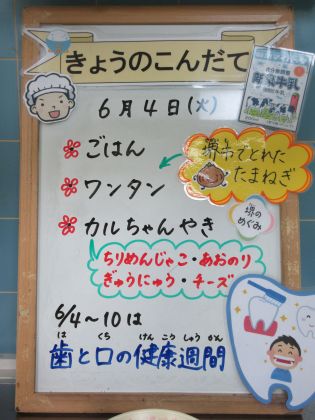 きょうのこんだて
6月4日(火)
ごはん
ワンタン
堺市でとれた
たまねぎ
堺の
めぐみ
カルちゃんやき
ちりめんじゃこ・あおのり
ぎゅうにゅう・チーズ
6/4〜10は
は くち けん こう しゅう かん
歯と口の健康週間